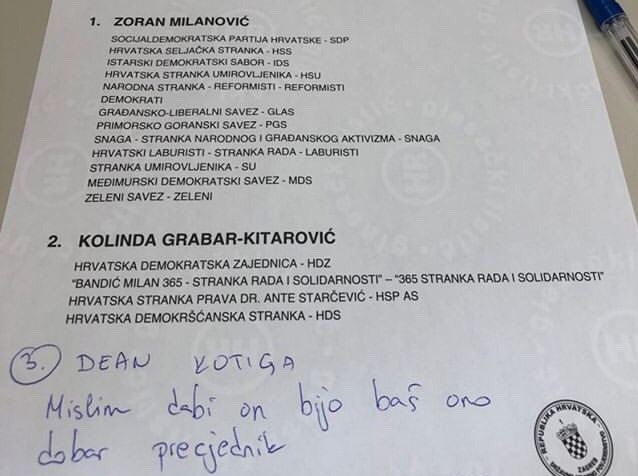 1. ZORAN MILANOVIĆ
SOCIJALDEMOKRATSKA PARTIJA HRVATSKE - SDP
HRVATSKA SELJAČKA STRANKA - HSS
ISTARSKI DEMOKRATSKI SABOR - IDS
HRVATSKA STRANKA UMIROVLJENIKA - HSU
NARODNA STRANKA - REFORMISTI - REFORMISTI
DEMOKRATI
GRAĐANSKO-LIBERALNI SAVEZ - GLAS
PRIMORSKO GORANSKI SAVEZ - PGS
SNAGA - STRANKA NARODNOG I GRAĐANSKOG AKTIVIZMA - SNAGA
HRVATSKI LABURISTI - STRANKA RADA - LABURISTI
STRANKA UMIROVLJENIKA - SU
MEĐIMURSKI DEMOKRATSKI SAVEZ - MDS
ZELENI SAVEZ - ZELENI
2. KOLINDA GRABAR-KITAROVIĆ
HRVATSKA DEMOKRATSKA ZAJEDNICA - HDZ
"BANDIĆ MILAN 365 - STRANKA RADA I SOLIDARNOSTI" – "365 STRANKA RADA I SOLIDARNOSTI"
HRVATSKA STRANKA PRAVA DR. ANTE STARČEVIĆ - HSP AS
HRVATSKA DEMOKRŠĆANSKA STRANKA - HDS
3. DEAN KOTIGA
Mislim dabi on bijo baš ono
dobar precjednik
REPUBLIKA HRVATSKA
ZAGREB